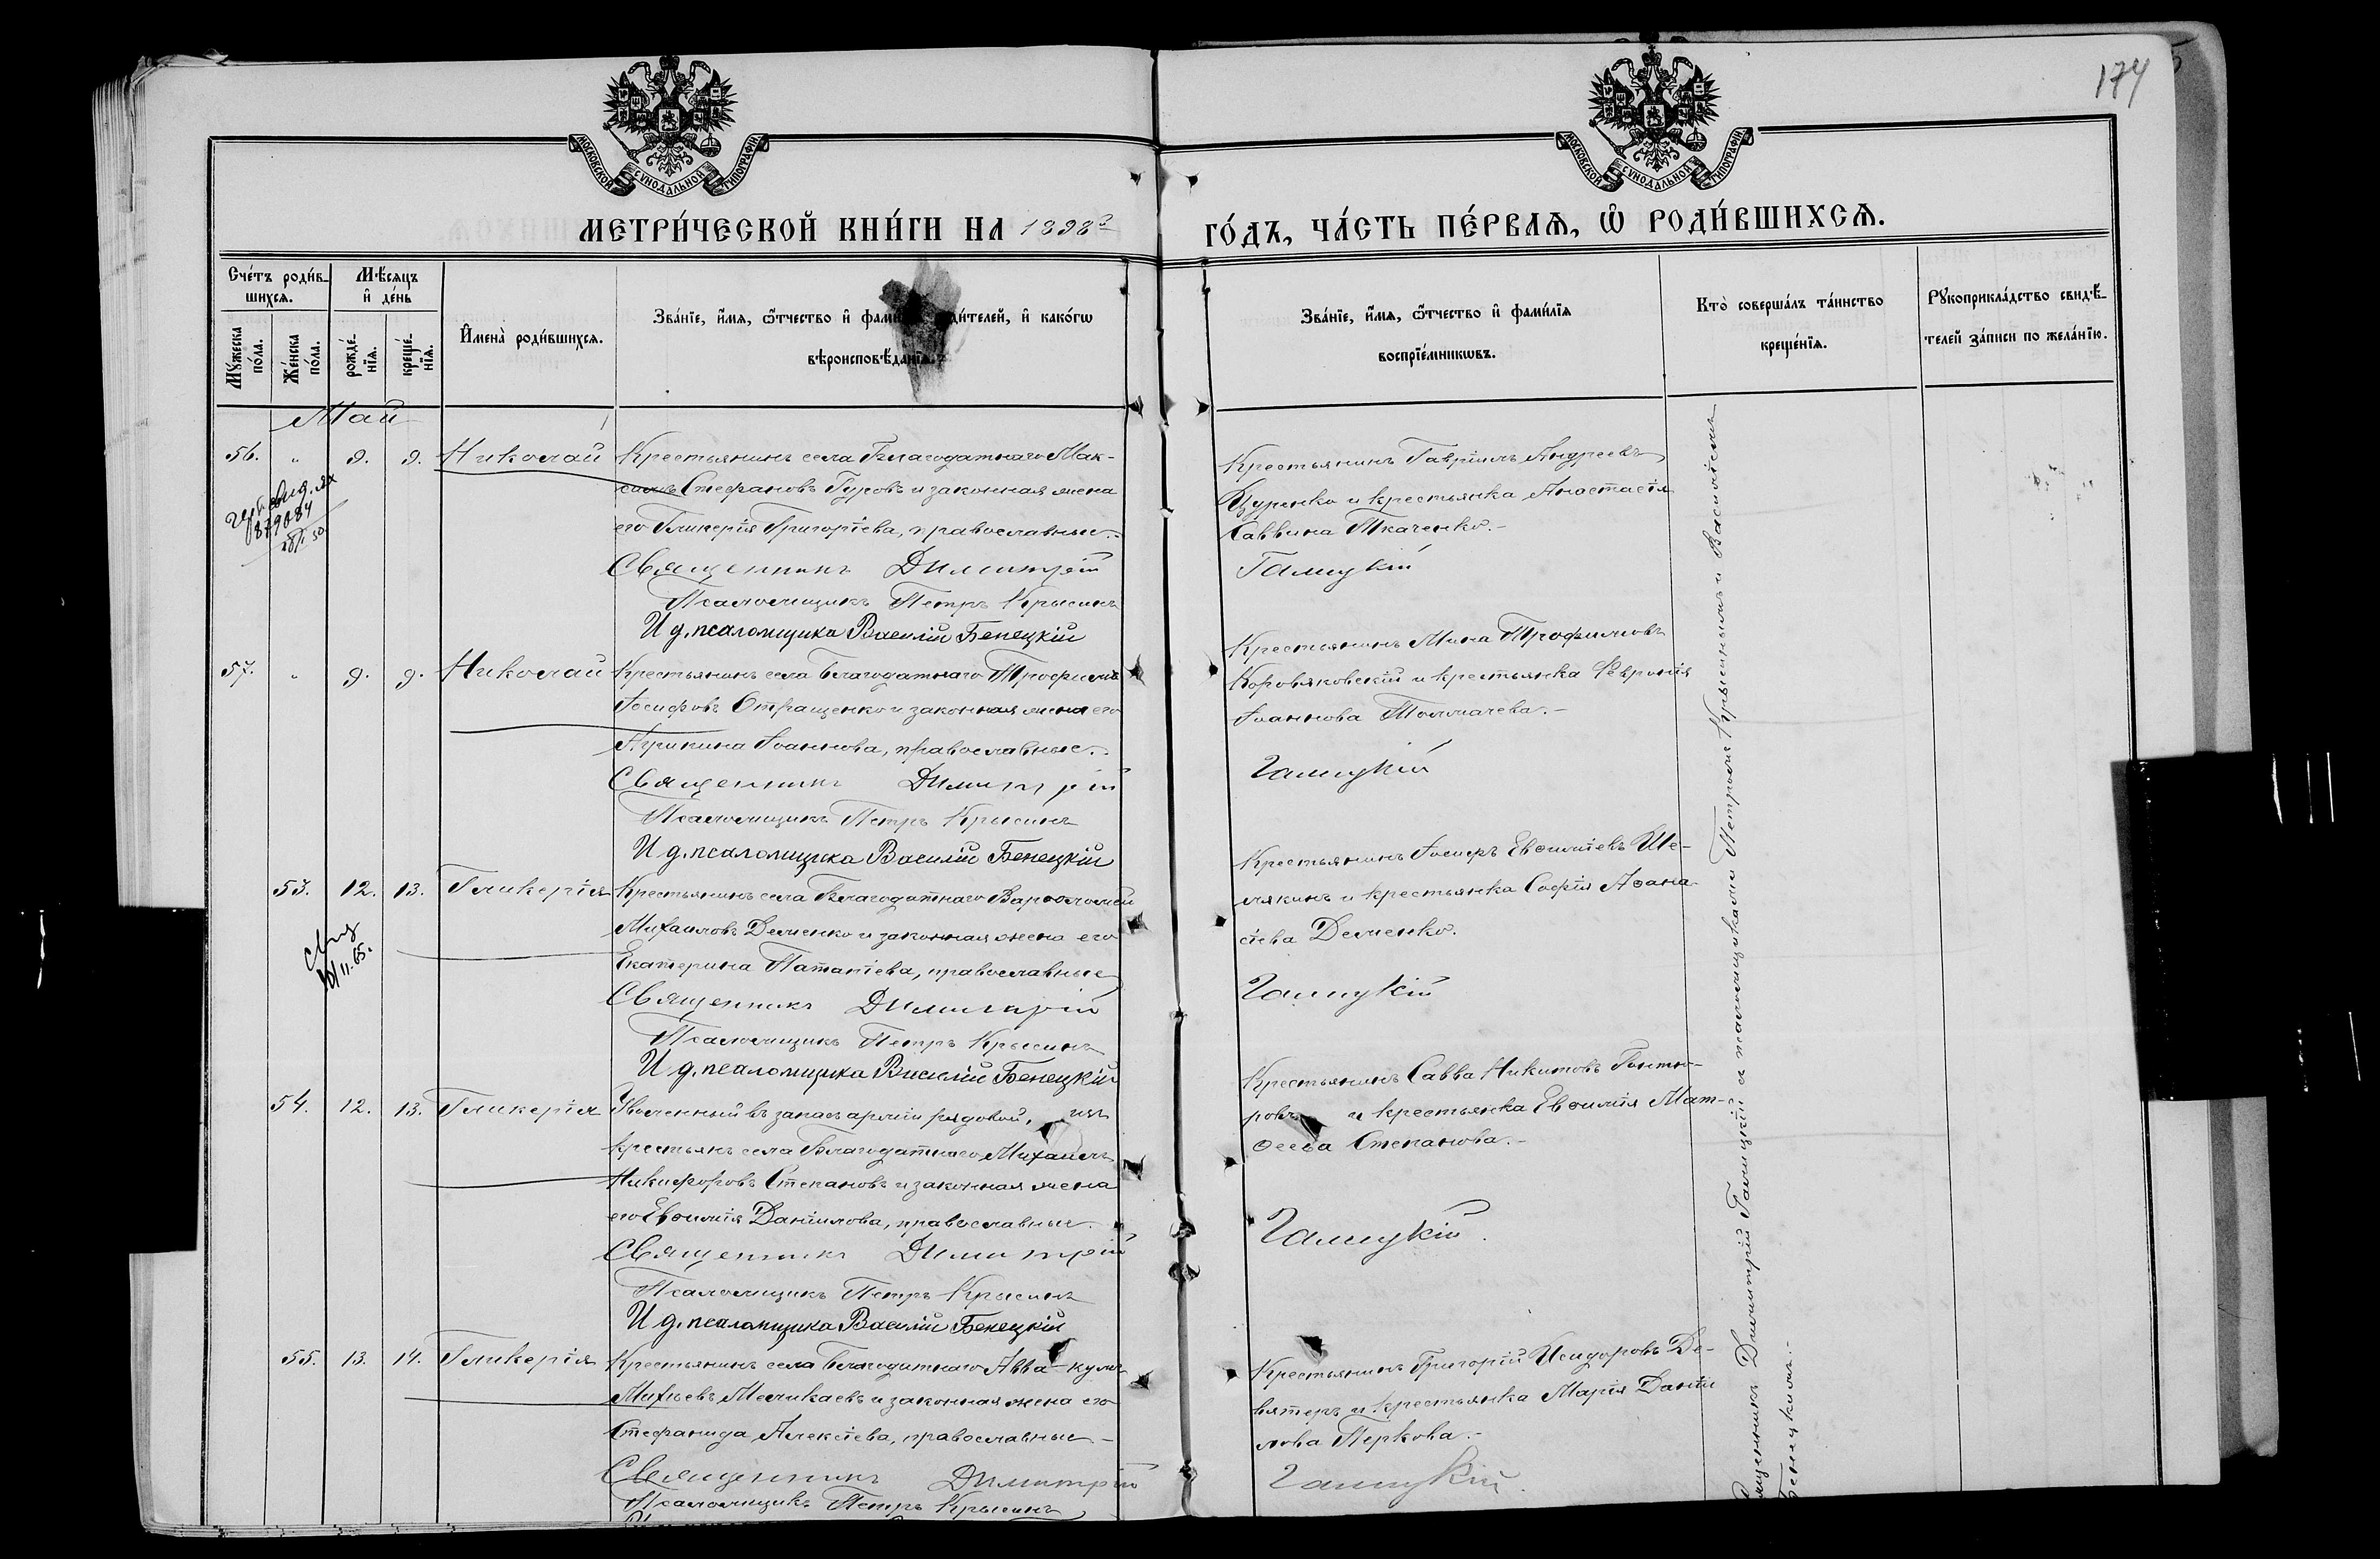 174
МОСКОВСКОЙ СѴНОДАЛЬНОЙ ТИПОГРАФІИ
МОСКОВСКОЙ СѴНОДАЛЬНОЙ ТИПОГРАФІИ
МЕТРИ́ЧЕСКОЙ КНИ́ГИ НА 1898й
ГО́ДЪ, ЧА́СТЬ ПЕ́РВАѦ, Ѡ҆ РОДИ́ВШИХСѦ.
Сче́тъ роди́в-
шихсѧ.
Мѣ́сѧцъ
и҆ де́нь
Мꙋ́жеска
по́ла.
Же́нска
по́ла.
рожде́-
нїѧ.
креще́-
нїѧ.
И҆мена̀ роди́вшихсѧ.
Зва́нїе, и҆́мѧ, ѻ҆́тчество и҆ фами́лїѧ роди́телей, и҆ како́гѡ
вѣроисповѣ́данїѧ.
Зва́нїе, и҆́мѧ, ѻ҆́тчество и҆ фами́лїѧ
воспрїе́мникѡвъ.
Кто̀ соверша́лъ та́инство
креще́нїѧ.
Рꙋкоприкла́дство свидѣ́-
телей за́писи по жела́нїю.
Май
56. " 9. 9. Николай
879084
Крестьянинъ села Благодатнаго Мак-
симъ Стефановъ Гуровъ и законная жена
его Гликерія Григоріева, православные.
Священникъ Димитрій
Псаломщикъ Петръ Крысинъ
И д. псаломщика Василій Бенецкій
Крестьянинъ Гавріилъ Андреевъ
Цуренко и крестьянка Анастасія
Саввина Ткаченко.-
Галицкій
57. " 9. 9. Николай
Крестьянинъ села Благодатнаго Трофимъ
Іосифовъ Отращенко и законная жена его
Агрипина Іоаннова, православные.
Священникъ Димитрій
Псаломщикъ Петръ Крысинъ
И д. псаломщика Василій Бенецкій
Крестьянинъ Мина Трофимовъ
Коровяковскій и крестьянка Февронія
Іоаннова Толмачева.-
Галицкій
53. 12. 13. Гликерія
10/II-65.
Крестьянинъ села Благодатнаго Варѳоломей
Михаиловъ Деменко и законная жена его
Екатерина Патапіева, православные
Священникъ Димитрій
Псаломщикъ Петръ Крысинъ
И д. псаломщика Василій Бенецкій
Крестьянинъ Іосифъ Евѳиміевъ Ше-
мякинъ и крестьянка Софія Аѳана-
сіева Деменко.
Галицкій
54. 12. 13. Гликерія
Уволенный въ запасъ арміи рядовой, изъ
крестьянъ села Благодатнаго Михаилъ
Никифоровъ Степановъ и законная жена
его Евѳимія Даніилова, православные.
Священникъ Димитрій
Псаломщикъ Петръ Крысинъ
И д. псаломщика Василій Бенецкій
Крестьянинъ Савва Никитовъ
ровъ и крестьянка Евѳимія Мат-
ѳеева Степанова.-
Галицкій.
55. 13. 14. Гликерія
Крестьянинъ села Благодатнаго Авва-кумъ
Михѣевъ Меликаевъ и законная жена его
Стефанида Алексіева, православные.-
Священникъ Димитрій
Псаломщикъ Петръ Крысинъ
Крестьянинъ Григорій Исидоровъ Де-
вятеръ и крестьянка Марія Даніи-
лова Перкова.-
Галицкій.
Священникъ Димитрій Галицкій и псаломщиками Петромъ Крысинымъ и Василіемъ
Бенецкимъ.-